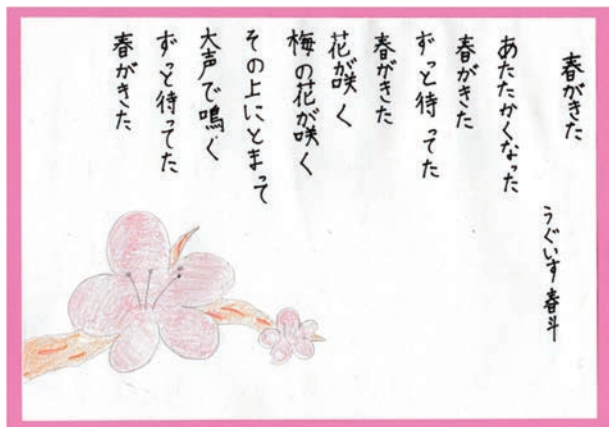 春がきた
うぐいす春斗
あたたかくなった
春がきた
ずっと待ってた
春がきた
花が咲く
梅の花が咲く
その上にとまって
大声で鳴く
ずっと待ってた
春がきた